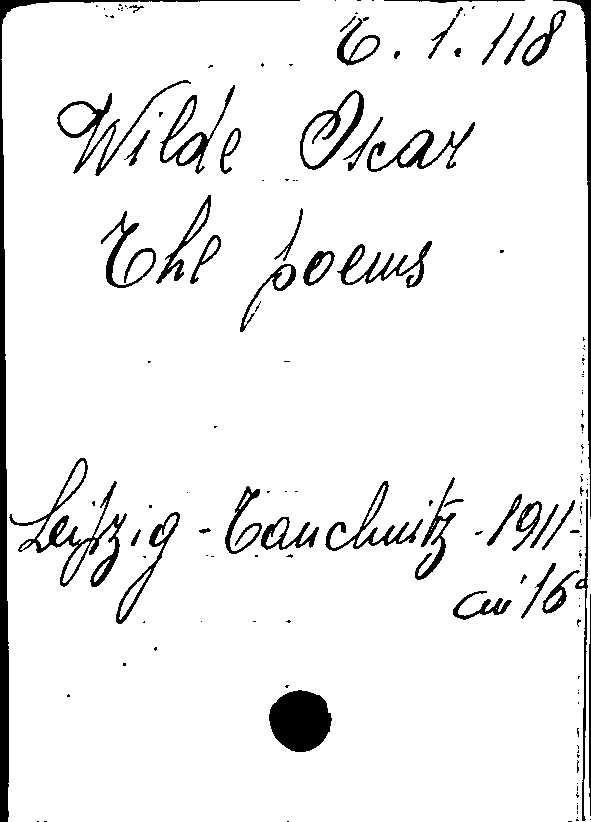 T. 1. 118
Wilde Oscar
The poems
Leipzig - Tauchnitz - 1911 -
in 16°